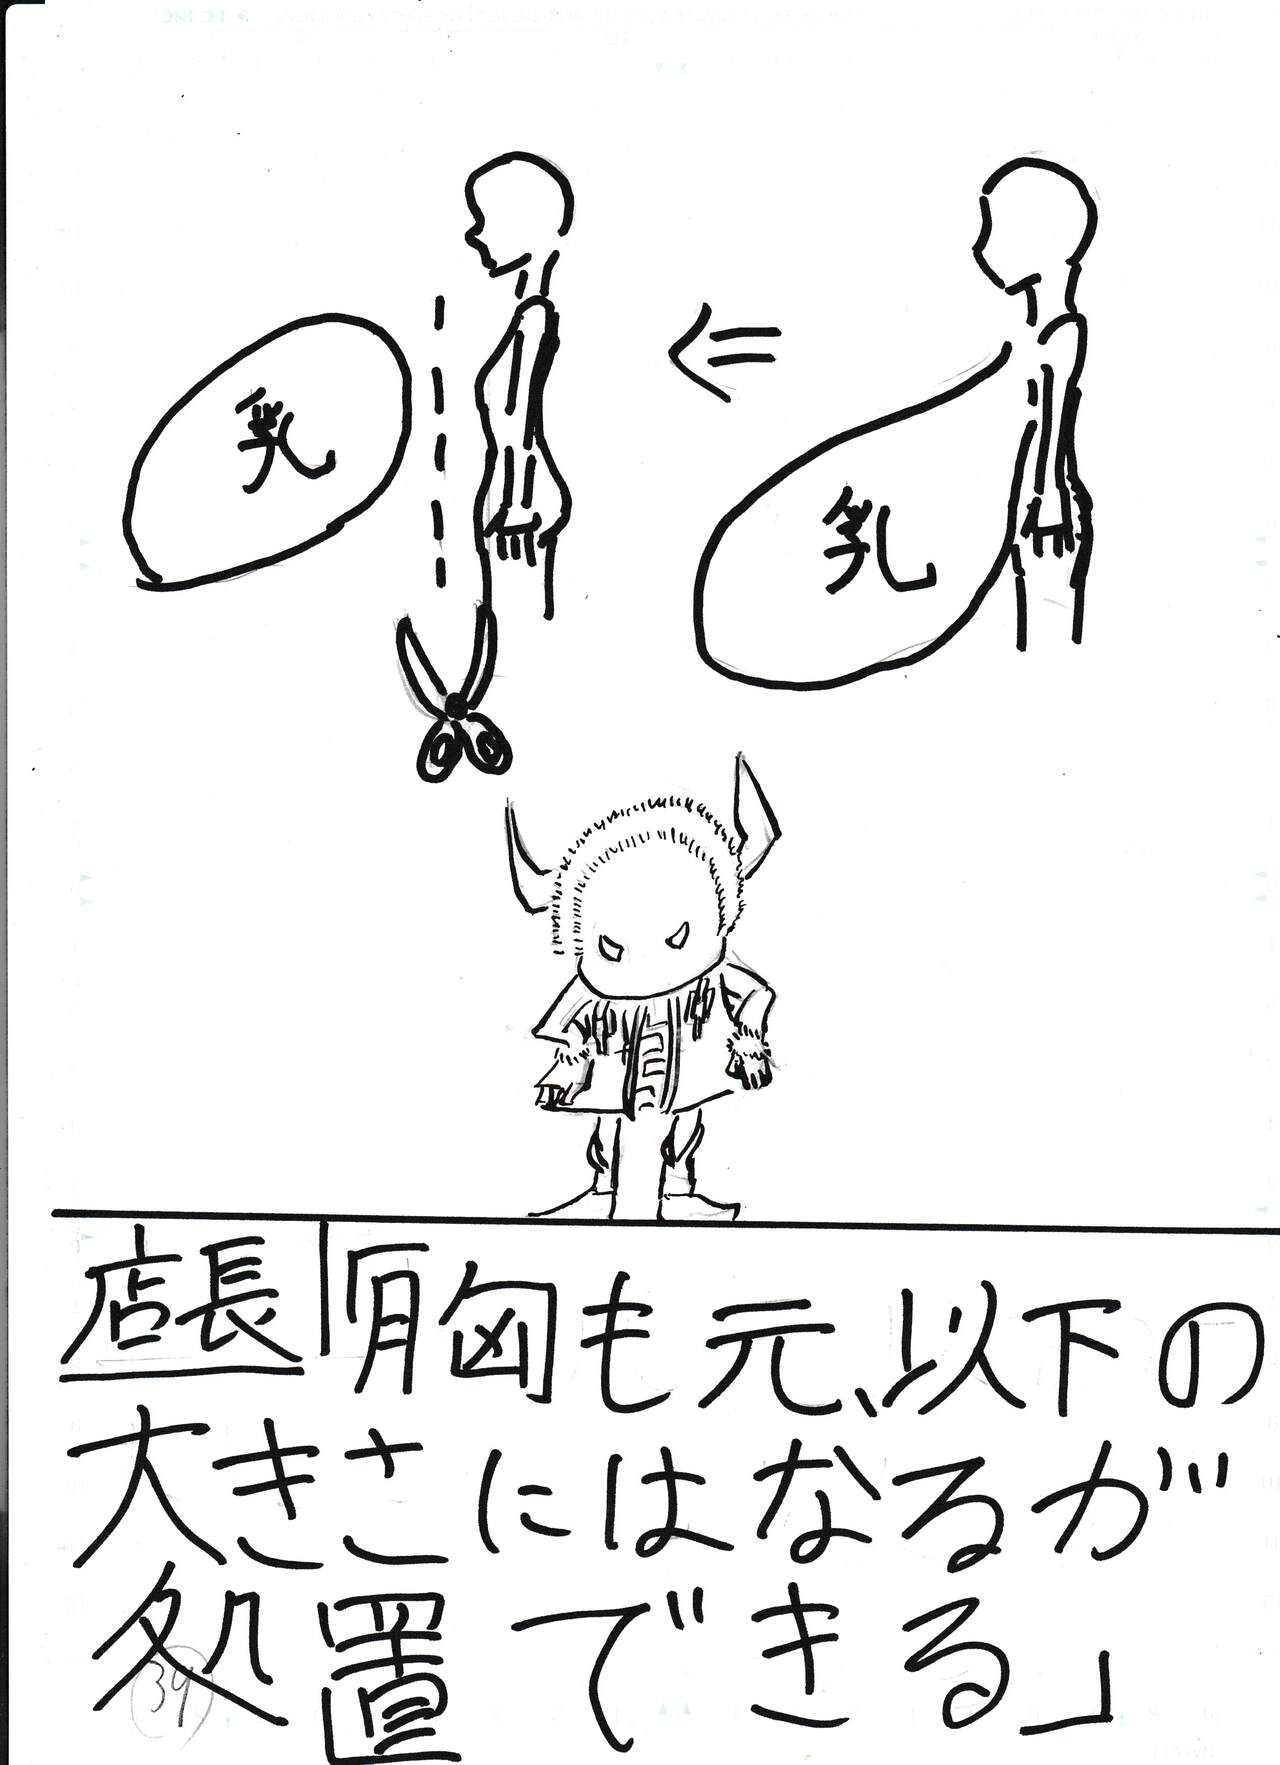 乳
乳
店長「胸も元、以下の
大きさにはなるが
処置できる」
39